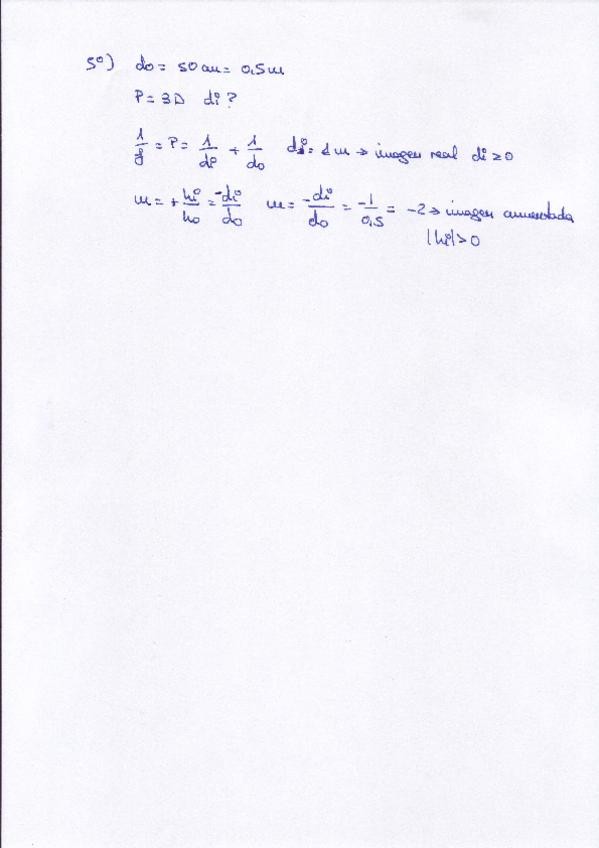 5º) do = 50 cm = 0,5 m
P = 3D di ?
1/f = P = 1/di + 1/do di = 1 m → imagen real di > 0
m = + hi/ho = -di/do m = -di/do = -1/0,5 = -2 → imagen aumentada
|hi| > 0